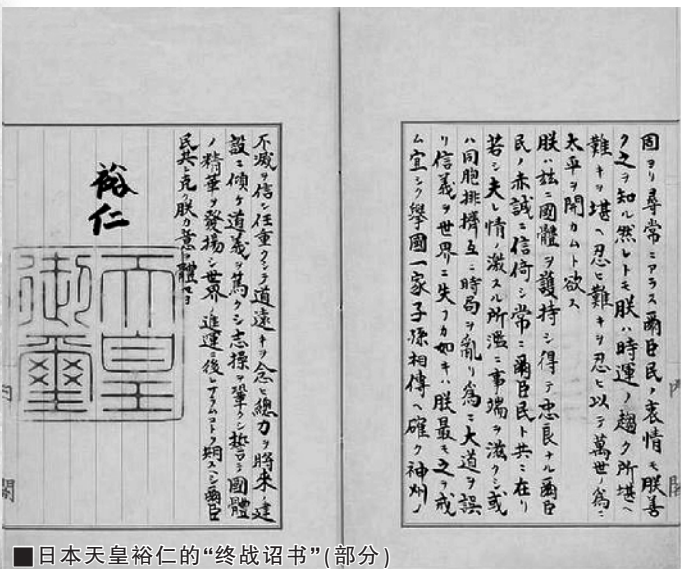 固ヨリ尋常ニアラス爾臣民ノ衷情モ朕善
ク之ヲ知ル然レトモ朕ハ時運ノ趨ク所堪ヘ
難キヲ堪ヘ忍ヒ難キヲ忍ヒ以テ萬世ノ爲ニ
太平ヲ開カムト欲ス
朕ハ茲ニ國體ヲ護持シ得テ忠良ナル爾臣
民ノ赤誠ニ信倚シ常ニ爾臣民ト共ニ在リ
若シ夫レ情ノ激スル所濫ニ事端ヲ滋クシ或
ハ同胞排擠互ニ時局ヲ亂リ爲ニ大道ヲ誤
リ信義ヲ世界ニ失フカ如キハ朕最モ之ヲ戒
ム宜シク擧國一家子孫相傳ヘ確ク神州ノ
不滅ヲ信シ任重クシテ道遠キヲ念ヒ總力ヲ將來ノ建
設ニ傾ケ道義ヲ篤クシ志操ヲ鞏クシ誓テ國體
ノ精華ヲ發揚シ世界ノ進運ニ後レサラムコトヲ期スヘシ爾臣
民其レ克ク朕カ意ヲ體セヨ
裕仁
天皇
御璽
内
閣
■日本天皇裕仁的“终战诏书”(部分)